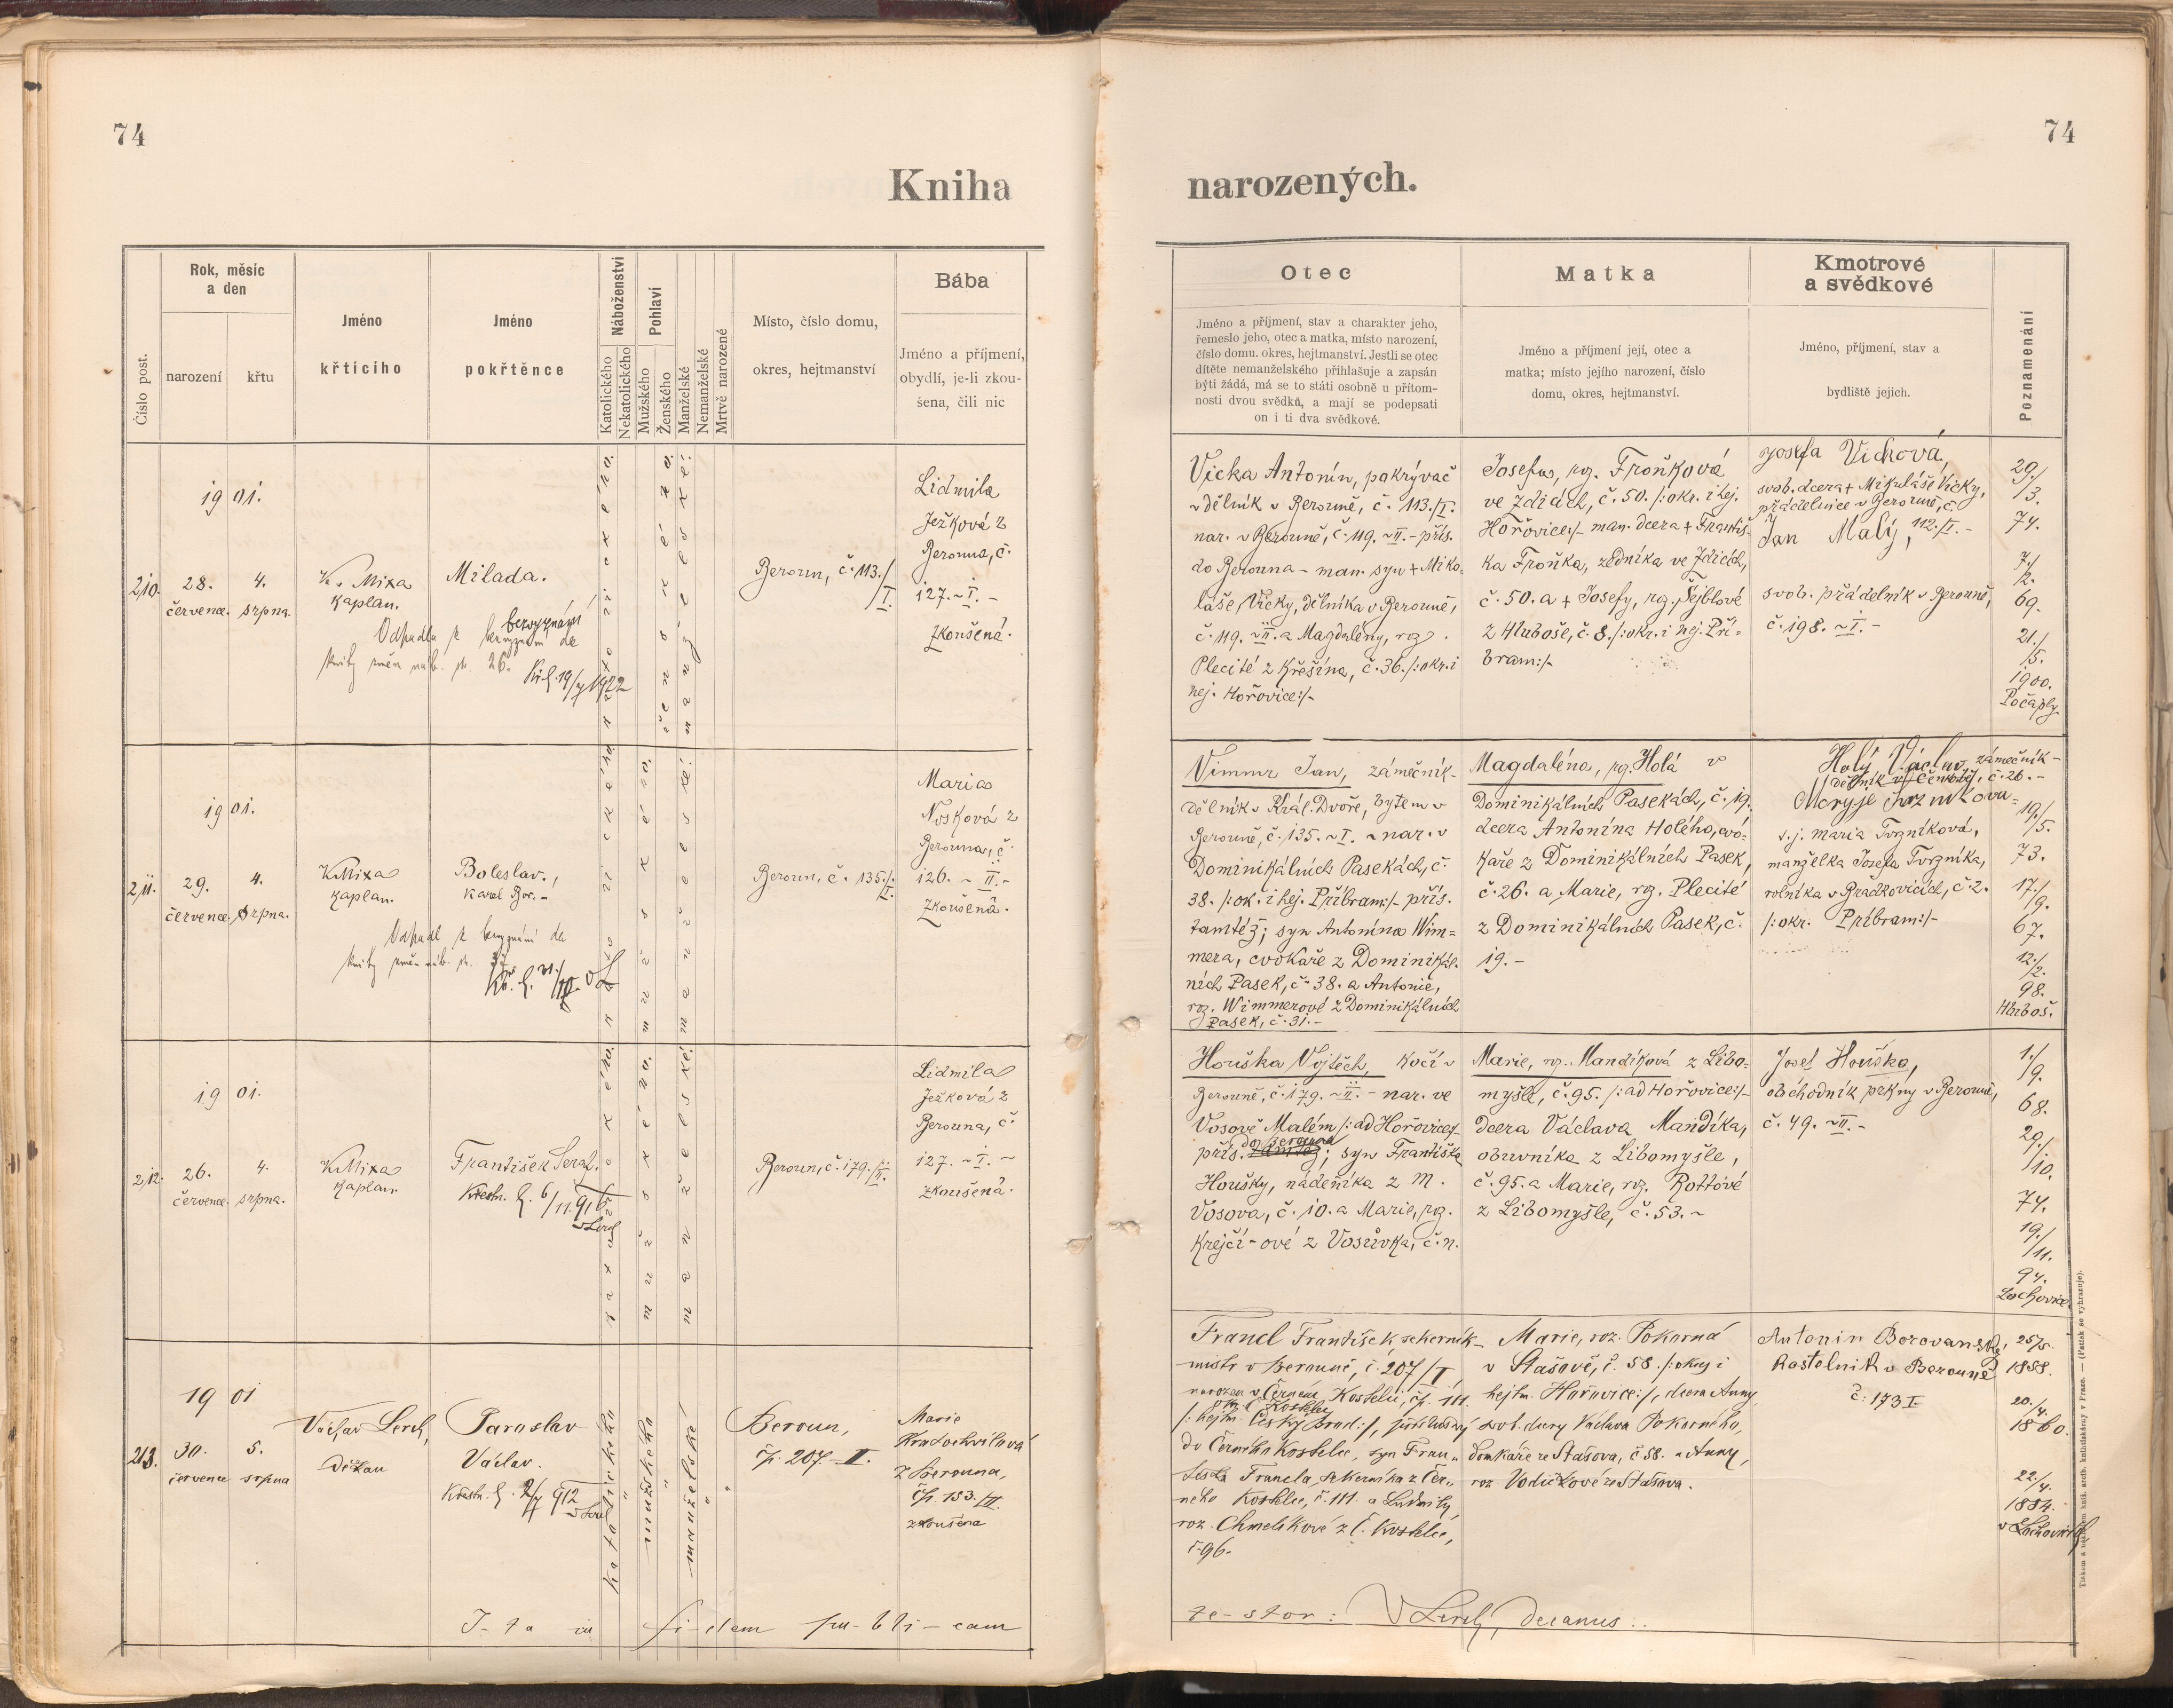 74
Kniha
Rok, měsíc
a den
Číslo post.
narození
křtu
Jméno
křtícího
Jméno
pokřtěnce
Náboženství
Katolického
Nekatolického
Pohlaví
Mužského
Ženského
Manželské
Nemanželské
Mrtvě narozené
Místo, číslo domu,
okres, hejtmanství
Bába
Jméno a příjmení,
obydlí, je-li zkou-
šena, čili nic
1901.
210.
28.
července.
4.
srpna.
K. Mixa
Kaplan.
Milada.
bezvyznání
Odpadla k bezvyznání
26.
19/ 1922
katolického
ženského
manželské
Beroun, č. 113./
I.
Lidmila
Ježková z
Berouna, č.
127. ~ I. -
zkoušená.
1901.
211.
29.
července.
4.
srpna.
K Mixa
Kaplan.
Boleslav.,
Karel Bor. -
Odpadl k bezvyznání
37
katolického
mužského
manželské
Beroun, č. 135./
I.
Maria
Nosková z
Berouna, č.
126. ~ II. -
zkoušená.
1901.
212.
26.
července.
4.
srpna.
K Mixa
Kaplan.
František Seraf.
6/11. 916
katolického
mužského
manželské
Beroun, č. 179./II.
Lidmila
Ježková z
Berouna, č.
127. ~ I. ~
zkoušená.
1901
213.
30.
července
5.
srpna
Václav Lerch,
děkan
Jaroslav
Václav.
912
katolického
mužského
manželské
Beroun,
čp. 207-I.
Marie
Kratochvilová
z Berouna,
čp. 153./II.
zkoušena
I-ta in fi-dem pu-bli-cam
74
narozených.
Otec
Jméno a příjmení, stav a charakter jeho,
řemeslo jeho, otec a matka, místo narození,
číslo domu. okres, hejtmanství. Jestli se otec
dítěte nemanželského přihlašuje a zapsán
býti žádá, má se to státi osobně u přítom-
nosti dvou svědků, a mají se podepsati
on i ti dva svědkové.
Matka
Jméno a příjmení její, otec a
matka; místo jejího narození, číslo
domu, okres, hejtmanství.
Kmotrové
a svědkové
Jméno, příjmení, stav a
bydliště jejich.
Poznamenání
Vicka Antonín, pokrývač
dělník v Berouně, č. 113./I.
nar. v Berouně, č. 119. ~ II. - přís.
do Berouna - man. syn + Miko-
láše Vicky, dělníka v Berouně,
č. 119. ~ II. a Magdalény, roz.
Plecité z Křešína, č. 36. /: okr. i
hej. Hořovice:/-
Josefa, roz. Froňková
ve Zdicích, č. 50. /: okr. i hej.
Hořovice:/- man. dcera + Františ-
ka Froňka, zedníka ve Zdicích,
č. 50. a + Josefy, roz. Šejblové
z Hluboše, č. 8. /: okr. i hej. Pří-
bram:/-
Josefa Vicková,
svob. dcera + Mikuláše Vicky,
přádelnice v Berouně, č.
112./I. -
Jan Malý,
svob. přádelník v Berouně,
č. 198. ~ I. -
29./
3.
74.
7./
2.
69.
21./
5.
1900.
Počaply.
Vimmr Jan, zámečník-
dělník v Král. Dvoře, bytem v
Berouně, č. 135. ~ I. ~ nar. v
Dominikálních Pasekách, č.
38. /: ok. i hej. Příbram:/- přís.
tamtéž; syn Antonína Wim-
mera, cvokaře z Dominikál.
ních Pasek, č. 38. a Antonie,
roz. Wimmerové z Dominikálních
Pasek, č. 31. -
Magdaléna, roz. Holá v
Dominikálních Pasekách, č. 19.
dcera Antonína Holého, cvo-
kaře z Dominikálních Pasek,
č. 26. a Marie, roz. Plecité
z Dominikálních Pasek, č.
19. -
Holý Václav, zámečník-
dělník v Čenkově, č. 26. -
v. j. Maria Tvrzníková,
manželka Josefa Tvrzníka,
rolníka v Bradkovicích, č. 2.
/: okr. Příbram:/-
19./
5.
73.
17./
9.
67.
12./
2.
98.
Hluboš.
Houška Vojtěch, kočí v
Berouně, č. 179. ~ II. - nar. ve
Vosově Malém /: ad Hořovice:/-
do Berouna
přís. tamtéž; syn Františka
Houšky, nádeníka z M.
Vosova, č. 10. a Marie, roz.
Krejčí-ové z Vosůvka, č. 11.
Marie, roz. Mandíková z Libo-
myšle, č. 95. /: ad Hořovice:/-
dcera Václava Mandíka,
obuvníka z Libomyšle,
č. 95. a Marie, roz. Rottové
z Libomyšle, č. 53. ~
Josef Houška,
obchodník prkny v Berouně,
č. 49. ~ II. -
1./
9.
68.
29./
10.
74.
19./
11.
94.
Lochovice.
Francl František, pekernik-
mistr v Berouně, č. 207/I,
narozen v Černém Kostelci, čp. 111.
okr. Č. Kostelec
/: hejtm. Český Brod:/, příslušný
do Černého Kostelce, syn Fran-
tiška Francla, pekerníka z Čer-
ného Kostelce, č. 111 a Ludmily,
roz. Chmelíkové z Č. Kostelce,
č. 96.
Marie, roz. Pokorná
v Stašově, č. 58. /: okres i
hejtm. Hořovice:/, dcera Anny
svob. dcery Václava Pokorného,
domkáře ze Stašova, č. 58. a Anny,
roz. Vodičkové ze Stašova.
Antonín Borovanský,
kostelník v Berouně
č. 173 I
25/5.
1888.
20./4.
1860.
22./4.
1884.
v Lochovicích
te-stor: V Lerch, decanus.